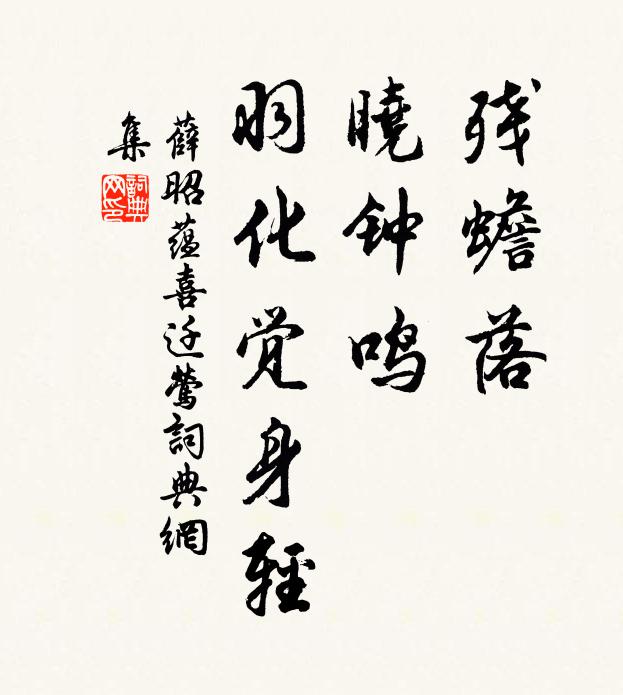 残蟾落
曉钟鸣
羽化觉身轻
薛昭蕴喜迁莺詞典網
集
詞典
网印